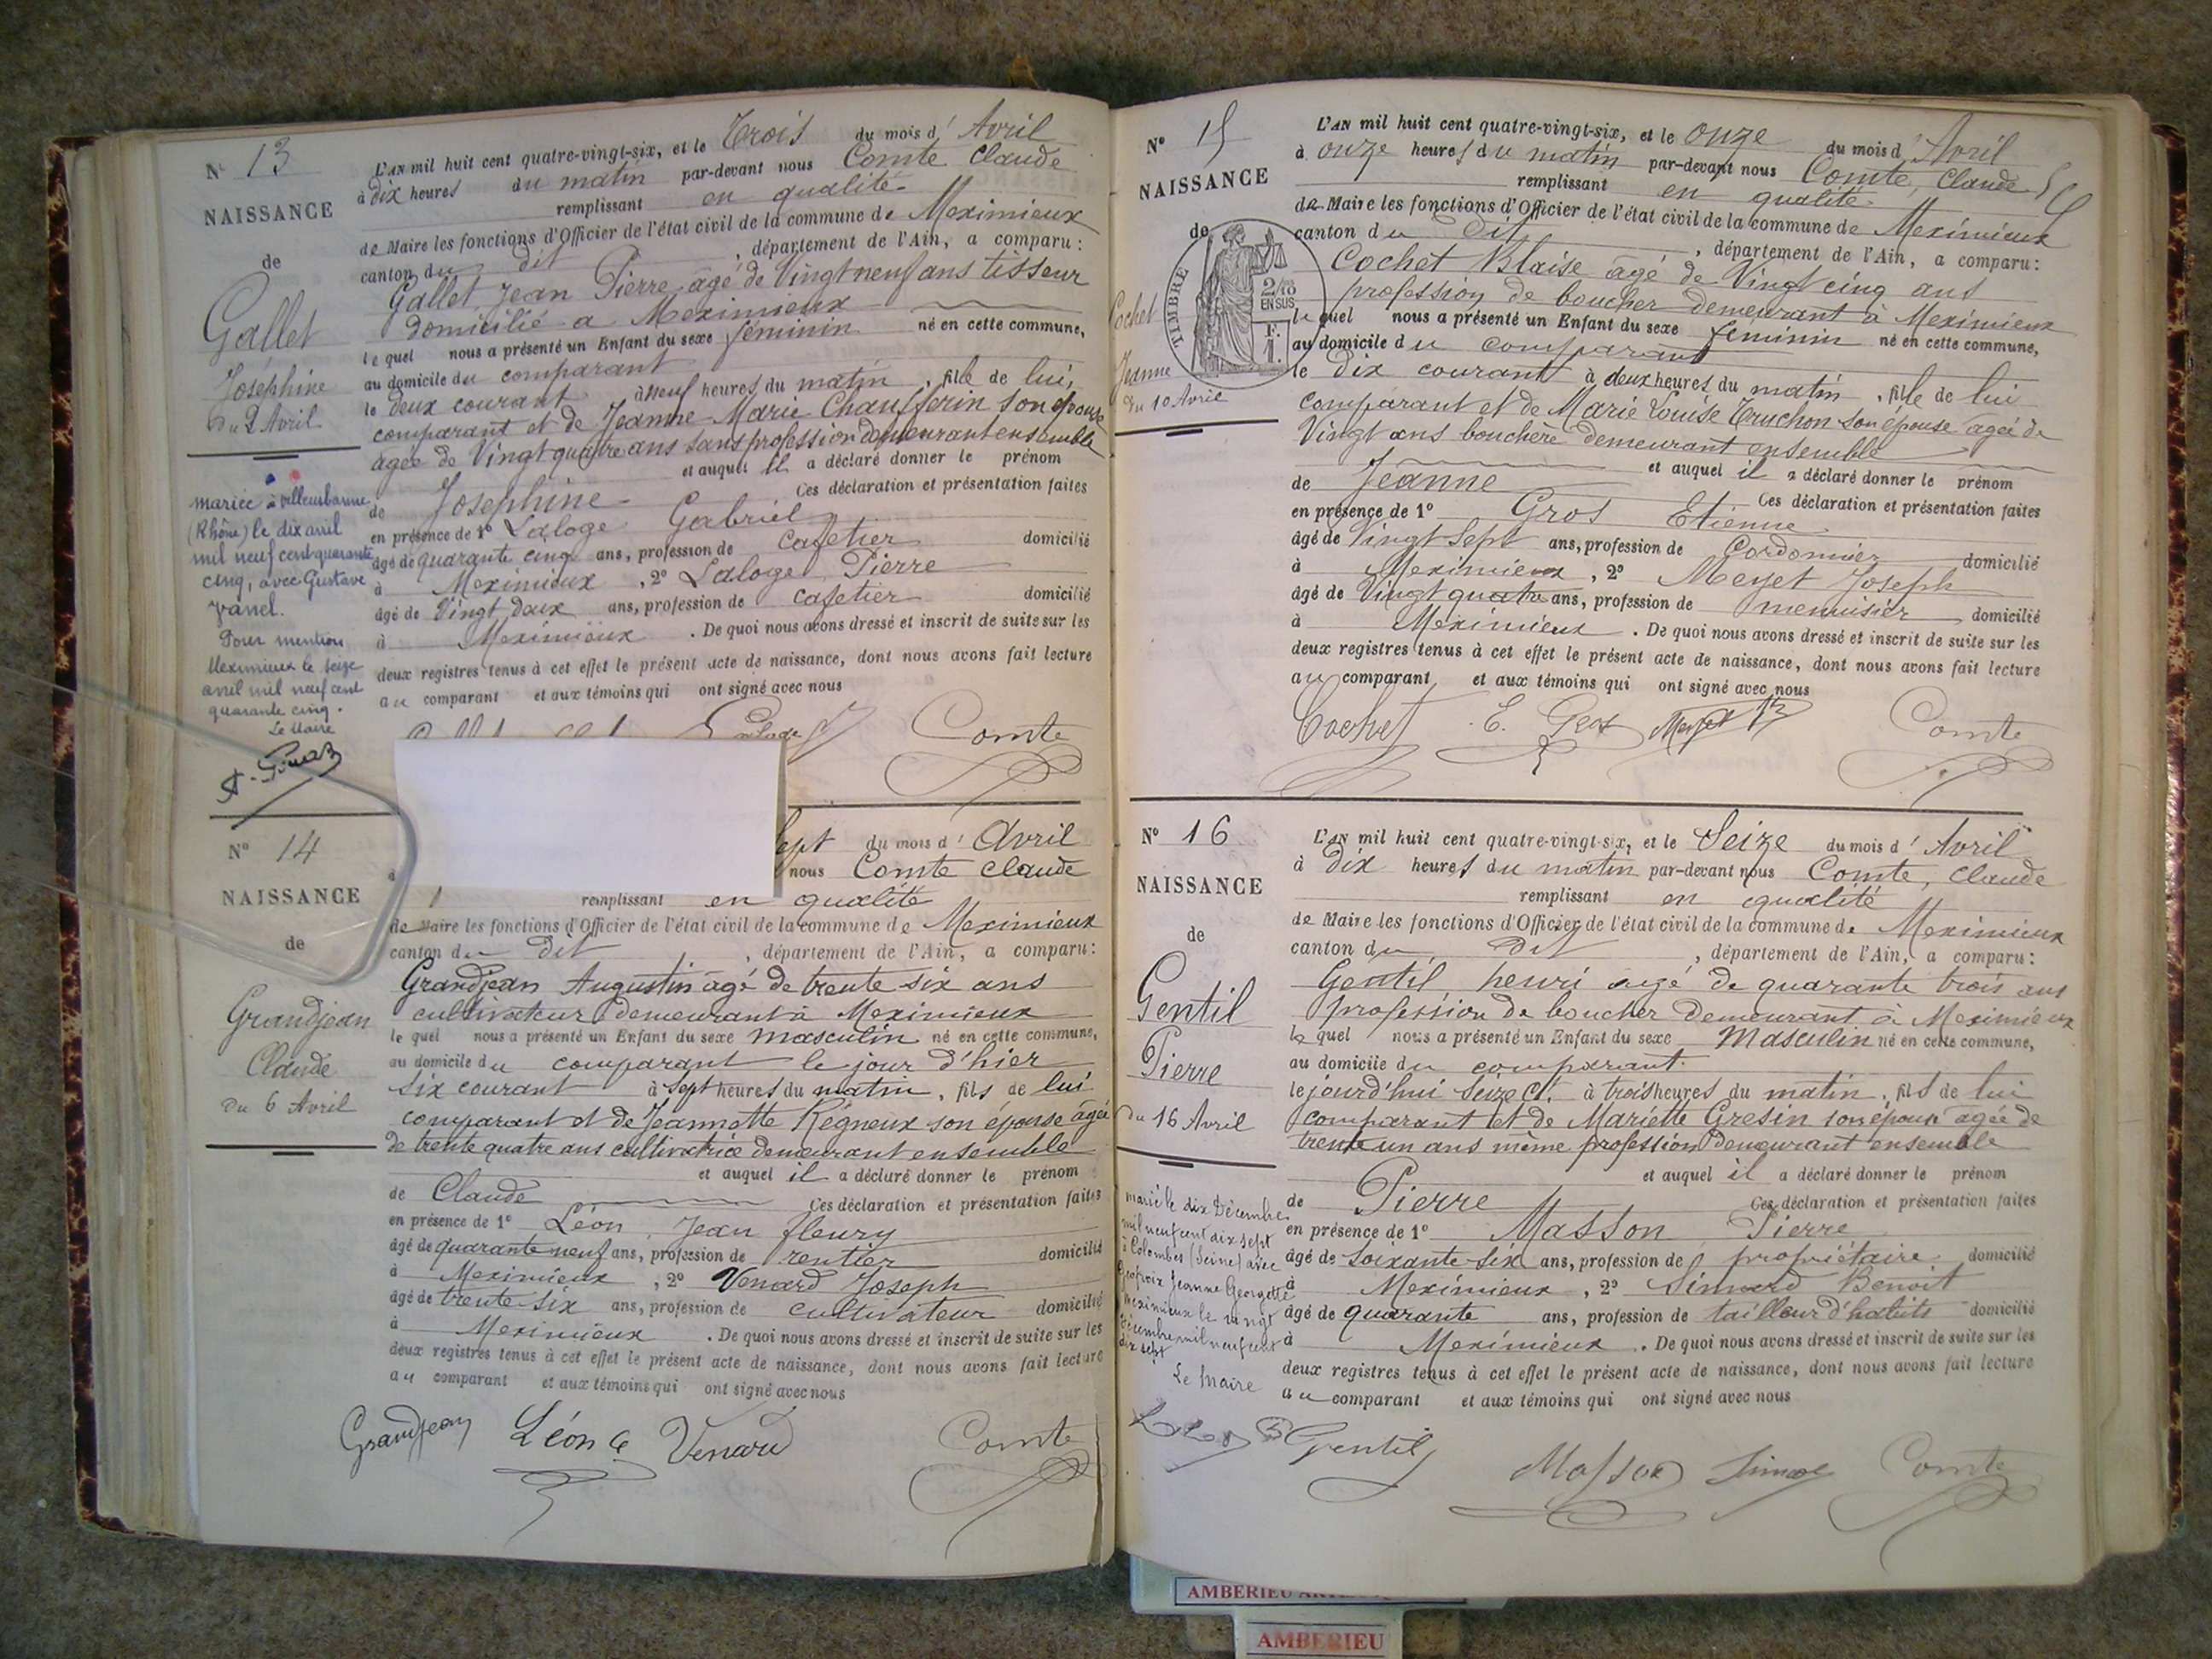 N° 13
NAISSANCE
de
Gallet
Joséphine
Du 2 Avril
mariée à villeurbanne
(Rhône) le dix avril
mil neuf cent quarante
cinq, avec Gustave
Pour mention
Meximieux le seize
avril mil neuf cent
quarante cinq.
Le Maire
L'AN mil huit cent quatre-vingt-six, et le Trois du mois d' Avril
à dix heures du matin par-devant nous Comte Claude
remplissant en qualité
de Maire les fonctions d'Officier de l'état civil de la commune de Meximieux
canton du dit, département de l'Ain, a comparu:
Gallet Jean Pierre âgé de Vingt neuf ans tisseur
domicilié a Meximieux
le quel nous a présenté un Enfant du sexe féminin né en cette commune,
au domicile du comparant
le deux courant à neuf heures du matin, fille de lui,
comparant et de Jeanne-Marie Chaufferin son épouse
agée de Vingt quatre ans sans profession demeurant ensemble
et auquel il a déclaré donner le prénom
de Josephine Ces déclaration et présentation faites
en présence de 1° Laloge Gabriel
âgé de quarante cinq ans, profession de Cafetier domicilié
à Meximieux, 2° Laloge Pierre
âgé de Vingt deux ans, profession de cafetier domicilié
à Meximieux. De quoi nous avons dressé et inscrit de suite sur les
deux registres tenus à cet effet le présent acte de naissance, dont nous avons fait lecture
au comparant et aux témoins qui ont signé avec nous
Comte
N° 14
NAISSANCE
de
Grandjean
Claude
Du 6 Avril
Sept du mois d' Avril
nous Comte Claude
remplissant en qualité
de Maire les fonctions d'Officier de l'état civil de la commune de Meximieux
canton du dit, département de l'Ain, a comparu:
Grandjean Augustin âgé de trente six ans
cultivateur demeurant à Meximieux
le quel nous a présenté un Enfant du sexe masculin né en cette commune,
au domicile du comparant le jour d'hier
six courant à sept heures du matin, fils de lui
comparant et de Jeannette Régneux son épouse âgée
de trente quatre ans cultivatrice demeurant ensemble
et auquel il a déclaré donner le prénom
de Claude Ces déclaration et présentation faites
en présence de 1° Léon, Jean fleury
âgé de quarante neuf ans, profession de rentier domicilié
à Meximieux, 2° Venard Joseph
âgé de trente-six ans, profession de cultivateur domicilié
à Meximieux. De quoi nous avons dressé et inscrit de suite sur les
deux registres tenus à cet effet le présent acte de naissance, dont nous avons fait lecture
au comparant et aux témoins qui ont signé avec nous
Grandjean Léon Venard Comte
N° 15
NAISSANCE
de
TIMBRE
2/10 EN SUS
F. 1.
Cochet
Jeanne
Du 10 Avril
L'AN mil huit cent quatre-vingt-six, et le onze du mois d' Avril
à onze heures du matin par-devant nous Comte, Claude
remplissant en qualité
de Maire les fonctions d'Officier de l'état civil de la commune de Meximieux
canton du Dit, département de l'Ain, a comparu:
Cochet Blaise âgé de Vingt cinq ans
profession de boucher demeurant à Meximieux
le quel nous a présenté un Enfant du sexe féminin né en cette commune,
au domicile du comparant
le dix courant à deux heures du matin, fille de lui
comparant et de Marie Louise Truchon son épouse agée de
Vingt ans bouchère demeurant ensemble
et auquel il a déclaré donner le prénom
de Jeanne Ces déclaration et présentation faites
en présence de 1° Gros Etienne
âgé de Vingt sept ans, profession de Cordonnier domicilié
à Meximieux, 2° Meyet Joseph
âgé de Vingt quatre ans, profession de menuisier domicilié
à Meximieux. De quoi nous avons dressé et inscrit de suite sur les
deux registres tenus à cet effet le présent acte de naissance, dont nous avons fait lecture
au comparant et aux témoins qui ont signé avec nous
Cochet E. Gros Meyet Comte
N° 16
NAISSANCE
de
Gentil
Pierre
Du 16 Avril
marié le dix Décembre
mil neuf cent dix sept
à Colombes (Seine) avec
Jeanne Georgette
Meximieux le vingt
décembre mil neuf cent
dix sept
Le Maire
L'AN mil huit cent quatre-vingt-six, et le Seize du mois d' Avril
à dix heures du matin par-devant nous Comte, Claude
remplissant en qualité
de Maire les fonctions d'Officier de l'état civil de la commune de Meximieux
canton du Dit, département de l'Ain, a comparu:
Gentil, henri âgé de quarante trois ans
profession de boucher demeurant à Meximieux
le quel nous a présenté un Enfant du sexe Masculin né en cette commune,
au domicile du comparant.
le jourd'hui seize ct. à trois heures du matin, fils de lui
comparant et de Mariette Gresin son épouse agée de
trente un ans même profession demeurant ensemble
et auquel il a déclaré donner le prénom
de Pierre Ces déclaration et présentation faites
en présence de 1° Masson Pierre
âgé de soixante-six ans, profession de propriétaire domicilié
à Meximieux, 2° Simard Benoit
âgé de quarante ans, profession de tailleur d'habits domicilié
à Meximieux. De quoi nous avons dressé et inscrit de suite sur les
deux registres tenus à cet effet le présent acte de naissance, dont nous avons fait lecture
au comparant et aux témoins qui ont signé avec nous
Gentil Masson Simard Comte
AMBERIEU
AMBERIEU